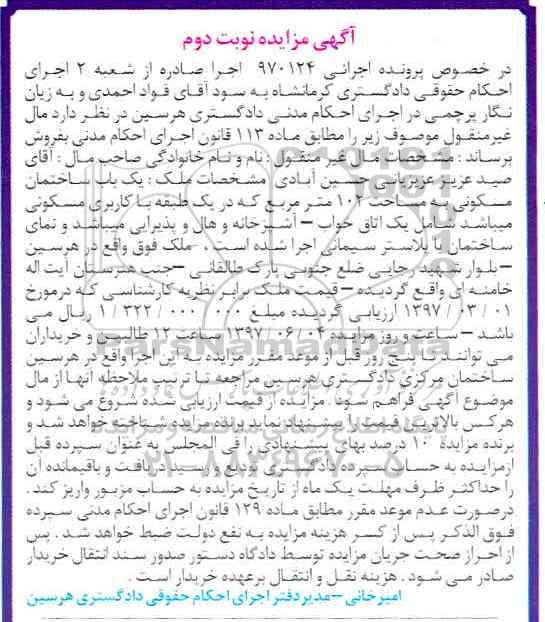 آگهی مزایده نوبت دوم
در خصوص پرونده اجرائی ۹۷۰۱۲۴ اجرا صادره از شعبه ۲ اجرای
احکام حقوقی دادگستری کرمانشاه به سود آقای فواد احمدی و به زیان
نگار پرچمی در اجرای احکام مدنی دادگستری هرسین در نظر دارد مال
غیرمنقول موصوف زیر را مطابق ماده ۱۱۳ قانون اجرای احکام مدنی بفروش
برساند : مشخصات مال غیر منقول : نام و نام خانوادگی صاحب مال : آقای
صید عزیز عزیزیانی حسین آبادی مشخصات ملک : یک باب ساختمان
مسکونی به مساحت ۱۰۲ متر مربع که در یک طبقه با کاربری مسکونی
میباشد شامل یک اتاق خواب – آشپزخانه و هال و پذیرایی میباشد و نمای
ساختمان با پلاستر سیمانی اجرا شده است ، -ملک فوق واقع در هرسین
–بلوار شهید رجایی ضلع جنوبی پارک طالقانی –جنب هنرستان آیت اله
خامنه ای واقع گردیده – قیمت ملک برابر نظریه کارشناسی که درمورخ
۰۱ / ۰۳ / ۱۳۹۷ ارزیابی گردیده مبلغ ۰۰۰ / ۰۰۰ / ۳۲۲ / ۱ ریال می
باشد – ساعت و روز مزایده ۰۴ / ۰۶ / ۱۳۹۷ ساعت ۱۲ طالبین و خریداران
می توانند تا پنج روز قبل از موعد مقرر مزایده به این اجرا واقع در هرسین
ساختمان مرکزی دادگستری هرسین مراجعه تا ترتیب ملاحظه آنها از مال
موضوع آگهی فراهم شود . مزایده از قیمت ارزیابی شده شروع می شود و
هرکس بالاترین قیمت را پیشنهاد نماید برنده مزایده شناخته خواهد شد و
برنده مزایده ۱۰ درصد بهای پیشنهادی را فی المجلس به عنوان سپرده قبل
ازمزایده به حساب سپرده دادگستری تودیع و رسید دریافت و باقیمانده آن
را حداکثر ظرف مهلت یک ماه از تاریخ مزایده به حساب مزبور واریز کند .
درصورت عدم موعد مقرر مطابق ماده ۱۲۹ قانون اجرای احکام مدنی سپرده
فوق الذکر پس از کسر هزینه مزایده به نفع دولت ضبط خواهد شد . پس
از احراز صحت جریان مزایده توسط دادگاه دستور صدور سند انتقال خریدار
صادر می شود . هزینه نقل و انتقال برعهده خریدار است .
امیرخانی – مدیردفتر اجرای احکام حقوقی دادگستری هرسین
ParsNamadData
۰۲۱-۸۸۳۴۹۶۷۰-۵